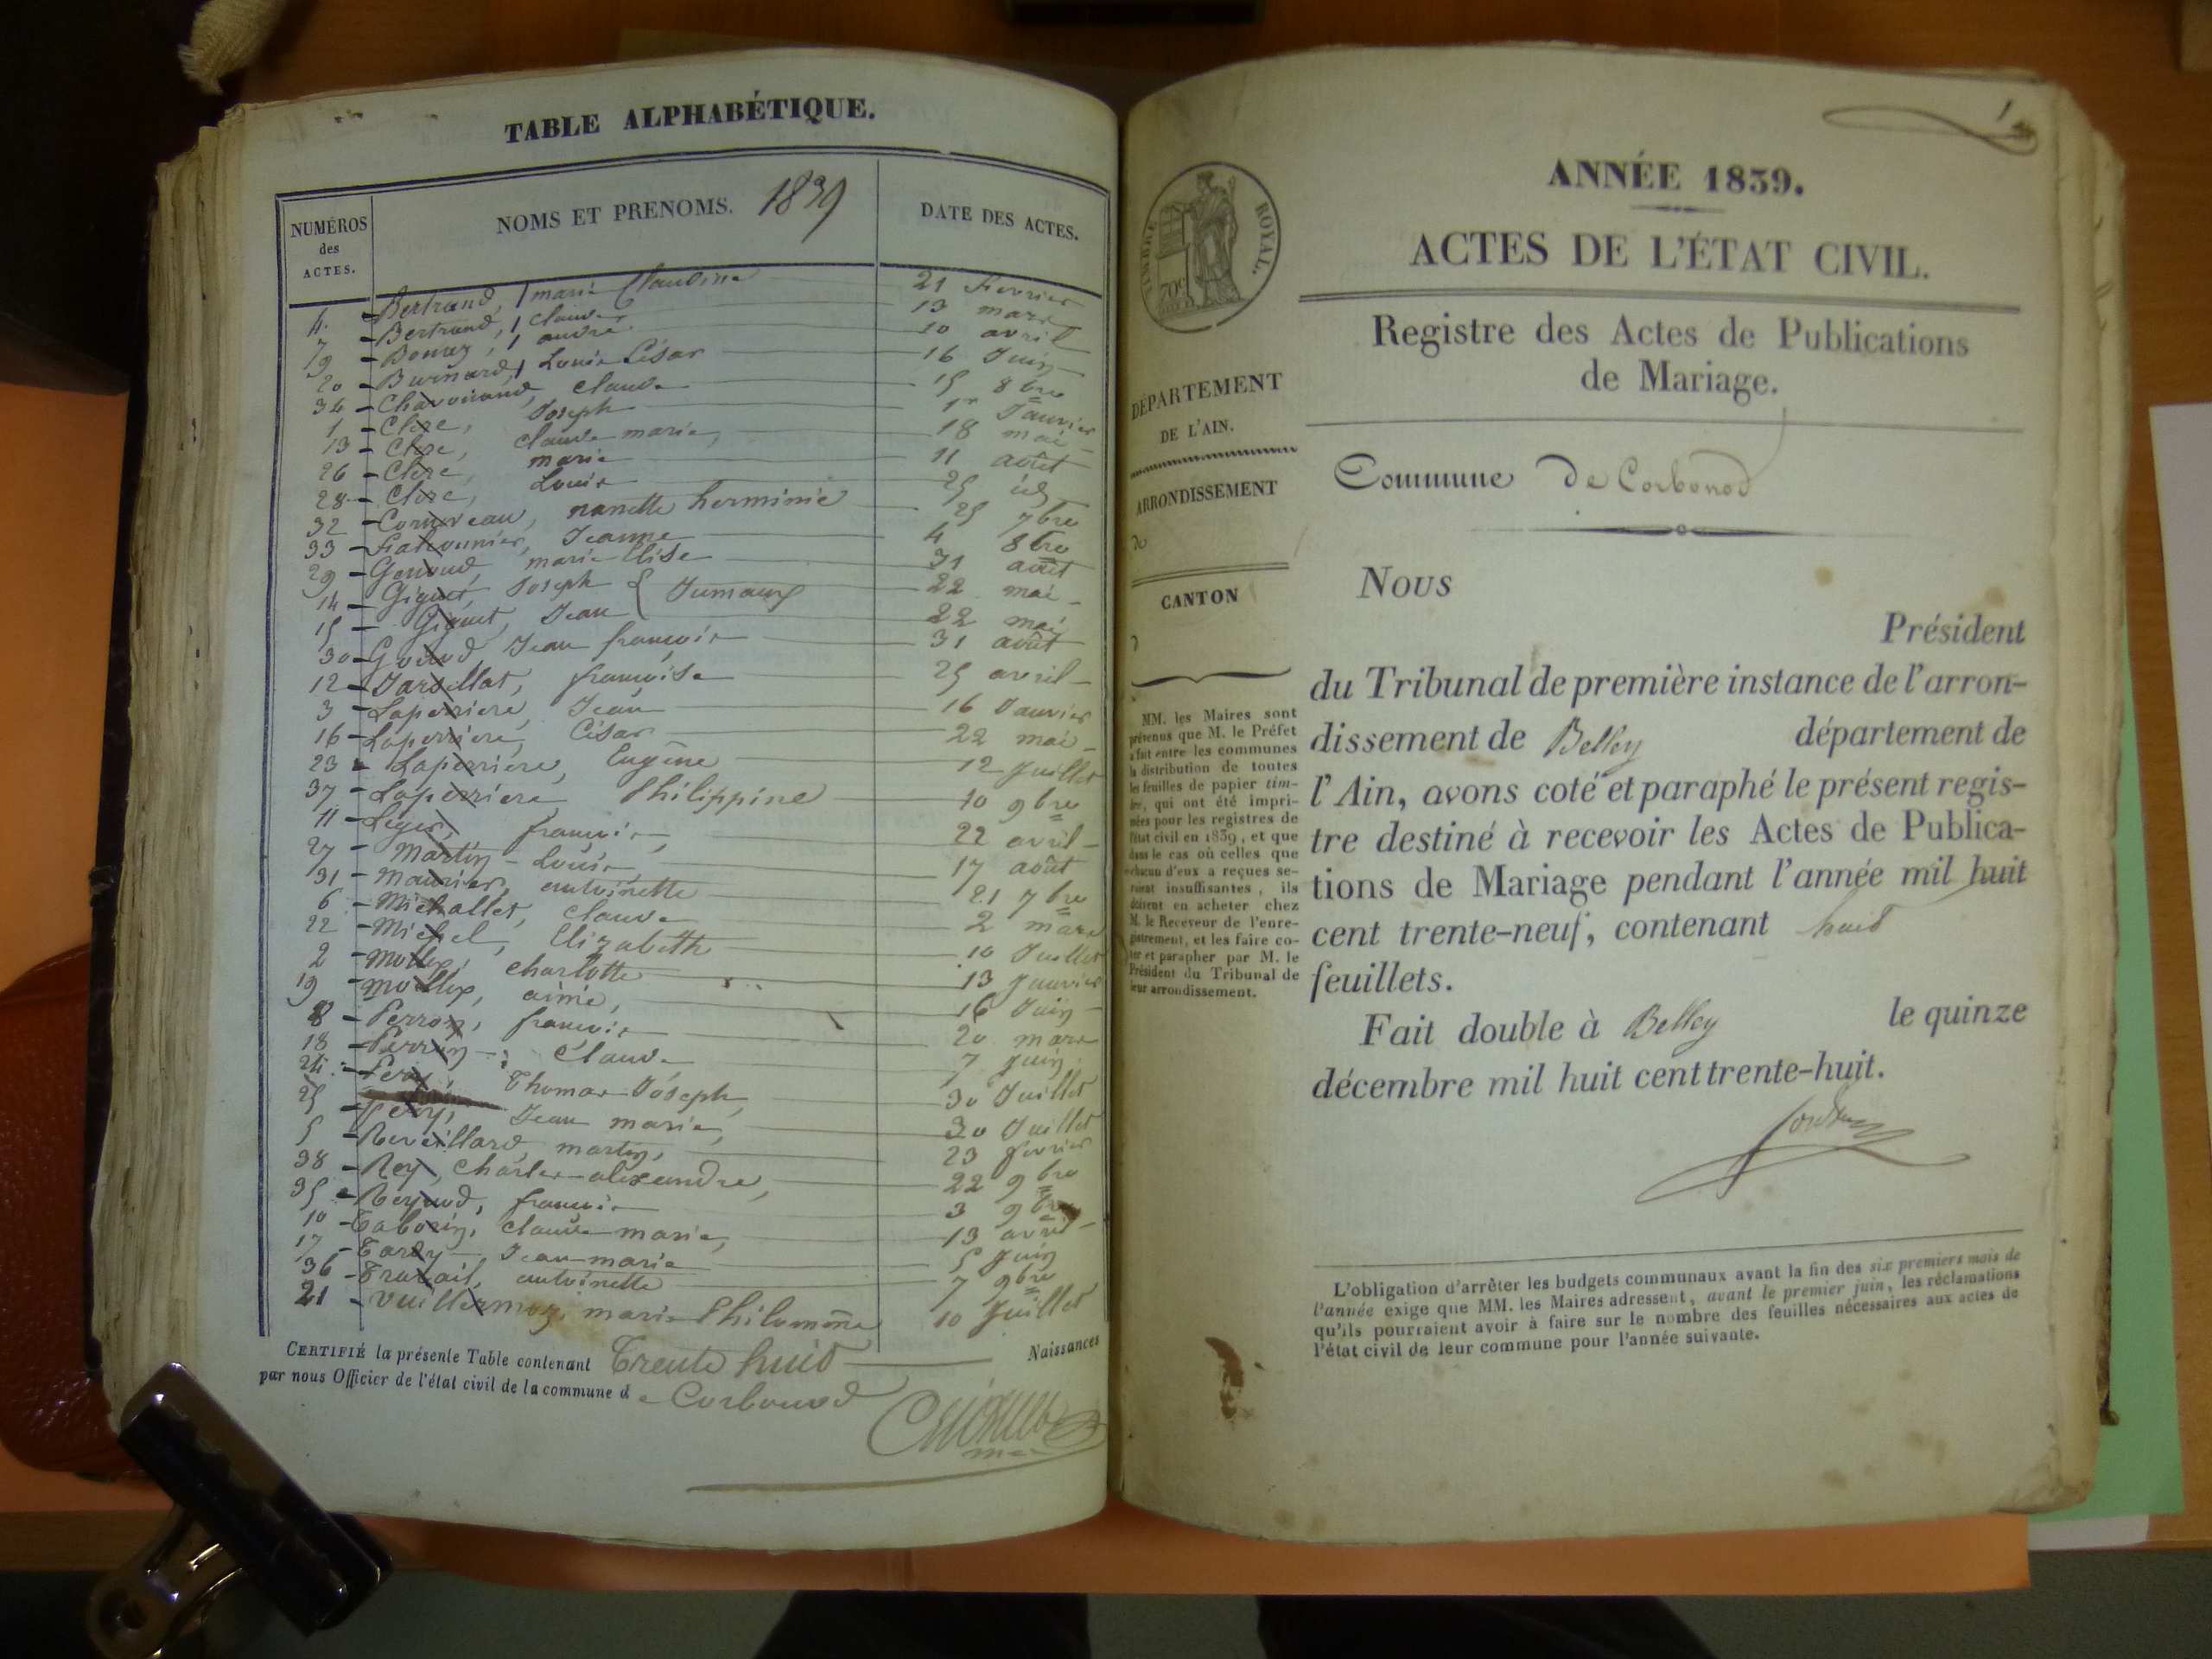 TABLE ALPHABÉTIQUE.
NUMÉROS
des
ACTES.
NOMS ET PRENOMS. 1839
DATE DES ACTES.
4. Bertrand, marie Claudine 21 février
7 Bertrand, Claude 13 mars
9 Bonaz, andré 10 avril
20 Burnard, Louis César 16 Juin
34 Chavoinand, Claude 15 8bre
1 Clere, Joseph 1er Janvier
13 Clere, Claude marie, 18 mai
26 Clere, marie 11 août
28 Clere, Louis 25 id
32 Cornveau, nanette herminie 25 7bre
33 Jeanne 4 8bre
29 Genoud, marie Elise 31 août
14 Giguet, Joseph Jumaux 22 mai
15 Giguet, Jean 22 mai
30 Gonod, Jean françois 31 août
12 Jarsellat, françoise 25 avril
3 Laperriere, Jean 16 Janvier
16 Laperriere, César 22 mai
23 Laperriere, Eugène 12 Juillet
37 Laperriere Philippine 10 9bre
11 Leger, françois, 22 avril
27 Martin Louis 17 août
31 Maurier, antoinette 21 7bre
6 Michallet, Claude 2 mars
22 Michel, Elizabeth 10 Juillet
2 Mollex, Charlotte 13 Janvier
19 Mollex, aimé, 16 Juin
8 Perron, françois 20 mars
18 Perrin, Claude 7 Juin
24 Pery, Thomas Joseph, 30 Juillet
25 Pery, Jean marie, 30 Juillet
5 Reveillard, martin, 23 février
38 Rey, Charles alexandre, 22 9bre
35 Reynod, françois 3 9bre
10 Taborin, Claude marie, 13 avril
17 Tardy Jean marie 5 Juin
36 Travail, antoinette 7 9bre
21 Vuillermoz, marie Philomène 10 Juillet
CERTIFIÉ la présente Table contenant Trente huit Naissances
par nous Officier de l'état civil de la commune de Corbonod
1
ANNÉE 1839.
ACTES DE L'ÉTAT CIVIL.
TIMBRE ROYAL.
70c
Registre des Actes de Publications
de Mariage.
DÉPARTEMENT
DE L'AIN.
ARRONDISSEMENT
d
CANTON
d
Commune de Corbonod
Nous
Président
du Tribunal de première instance de l'arron-
dissement de Belley département de
l'Ain, avons coté et paraphé le présent regis-
tre destiné à recevoir les Actes de Publica-
tions de Mariage pendant l'année mil huit
cent trente-neuf, contenant huit
feuillets.
Fait double à Belley le quinze
décembre mil huit cent trente-huit.
MM. les Maires sont
prévenus que M. le Préfet
a fait entre les communes
la distribution de toutes
les feuilles de papier tim-
bré, qui ont été impri-
mées pour les registres de
l'état civil en 1839, et que
dans le cas où celles que
chacun d'eux a reçues se-
raient insuffisantes, ils
doivent en acheter chez
M. le Receveur de l'enre-
gistrement, et les faire co-
ter et parapher par M. le
Président du Tribunal de
leur arrondissement.
L'obligation d'arrêter les budgets communaux avant la fin des six premiers mois de
l'année exige que MM. les Maires adressent, avant le premier juin, les réclamations
qu'ils pourraient avoir à faire sur le nombre des feuilles nécessaires aux actes de
l'état civil de leur commune pour l'année suivante.